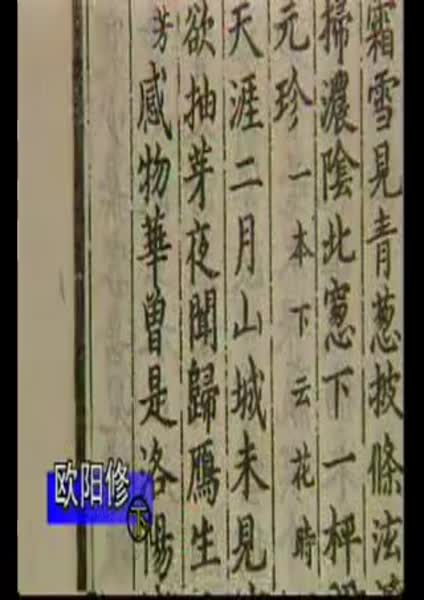 霜雪見青葱披條泫
掃濃陰此窻下一枰
元珍一本下云花時
天涯二月山城未見
欲抽芽夜聞歸鴈生
芳感物華曽是洛陽
欧阳修
下